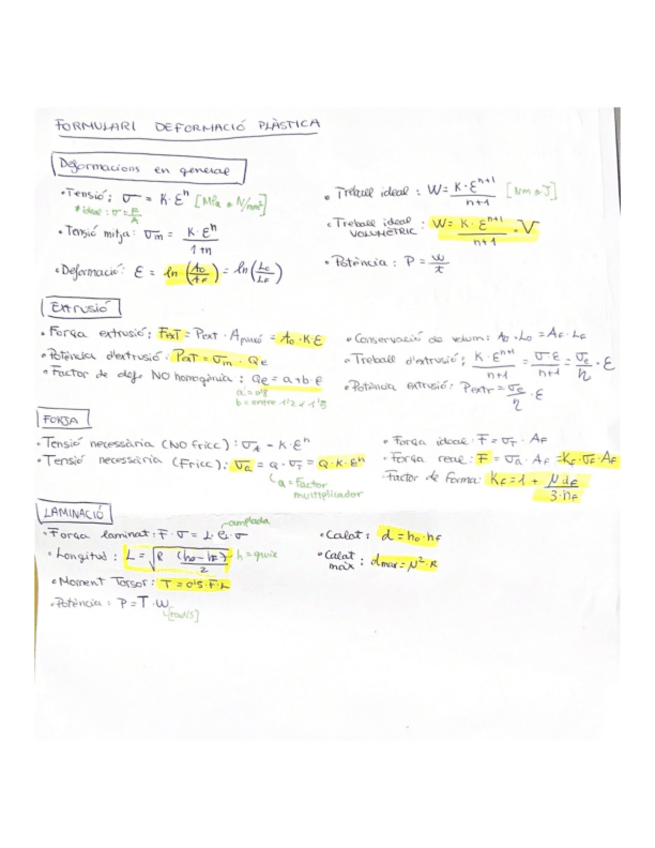 FORMULARI DEFORMACIÓ PLÀSTICA
Deformacions en general
• Tensió: σ = K·ε^n [MPa o N/mm²]
* ideal: σ = F/A
• Tensió mitja: σm = K·ε^n / 1+n
• Deformació: ε = ln (A0/AF) = ln (L0/LF)
• Treball ideal: W = K·ε^n+1 / n+1 [Nm o J]
• Treball ideal VOLUMÈTRIC: W = K·ε^n+1 / n+1 · V
• Potència: P = W/t
Extrusió
• Força extrusió: FEXT = Pext · Apunxó = A0·K·ε
• Potència d'extrusió: PEXT = σm · Qe
• Factor de defo NO homogènia: Qe = a+b·ε
a = 0'8
b = entre 1'2 i 1'5
• Conservació de volum: A0·L0 = AF·LF
• Treball d'extrusió: K·ε^n+1 / n+1 = σ·ε / n+1 = σe/η · ε
• Potència extrusió: Pextr = σe/η · ε
FORJA
• Tensió necessària (NO fricc): σA = K·ε^n
• Tensió necessària (Fricc): σa = Q·σT = Q·K·ε^n
a = Factor multiplicador
• Força ideal: F = σT · AF
• Força real: F = σa · AF = KF·σF·AF
• Factor de Forma: KF = 1 + μ dF / 3·hF
LAMINACIÓ
amplada
• Força laminat: F·σ = L·e·σ
• Longitud: L = √R (h0-hF) / 2 h = gruix
• Moment Torsor: T = 0'5·F·L
• Potència: P = T·W
[rad/s]
• Calat: d = h0·hF
• Calat màx: dmax = μ²·R